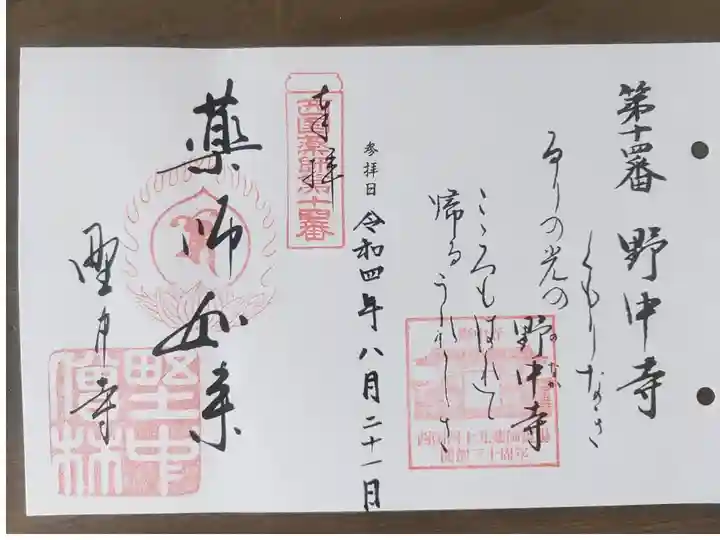 第十四番 野中寺
くもりなき
るりの光の
野中寺
のなか
こゝろもはれて
帰るうれしさ
参拝日 令和四年八月二十一日
奉拝
西国薬師第十四番
薬師如来
野中寺
野中僧林
西国四十九薬師霊場
開創三十周年